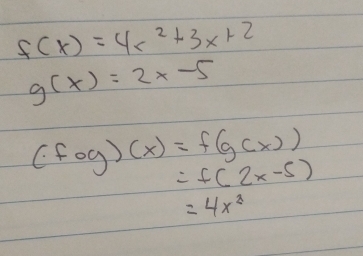 f(x) = 4x² + 3x + 2
g(x) = 2x - 5
(fog)(x) = f(g(x))
= f(2x-5)
= 4x³